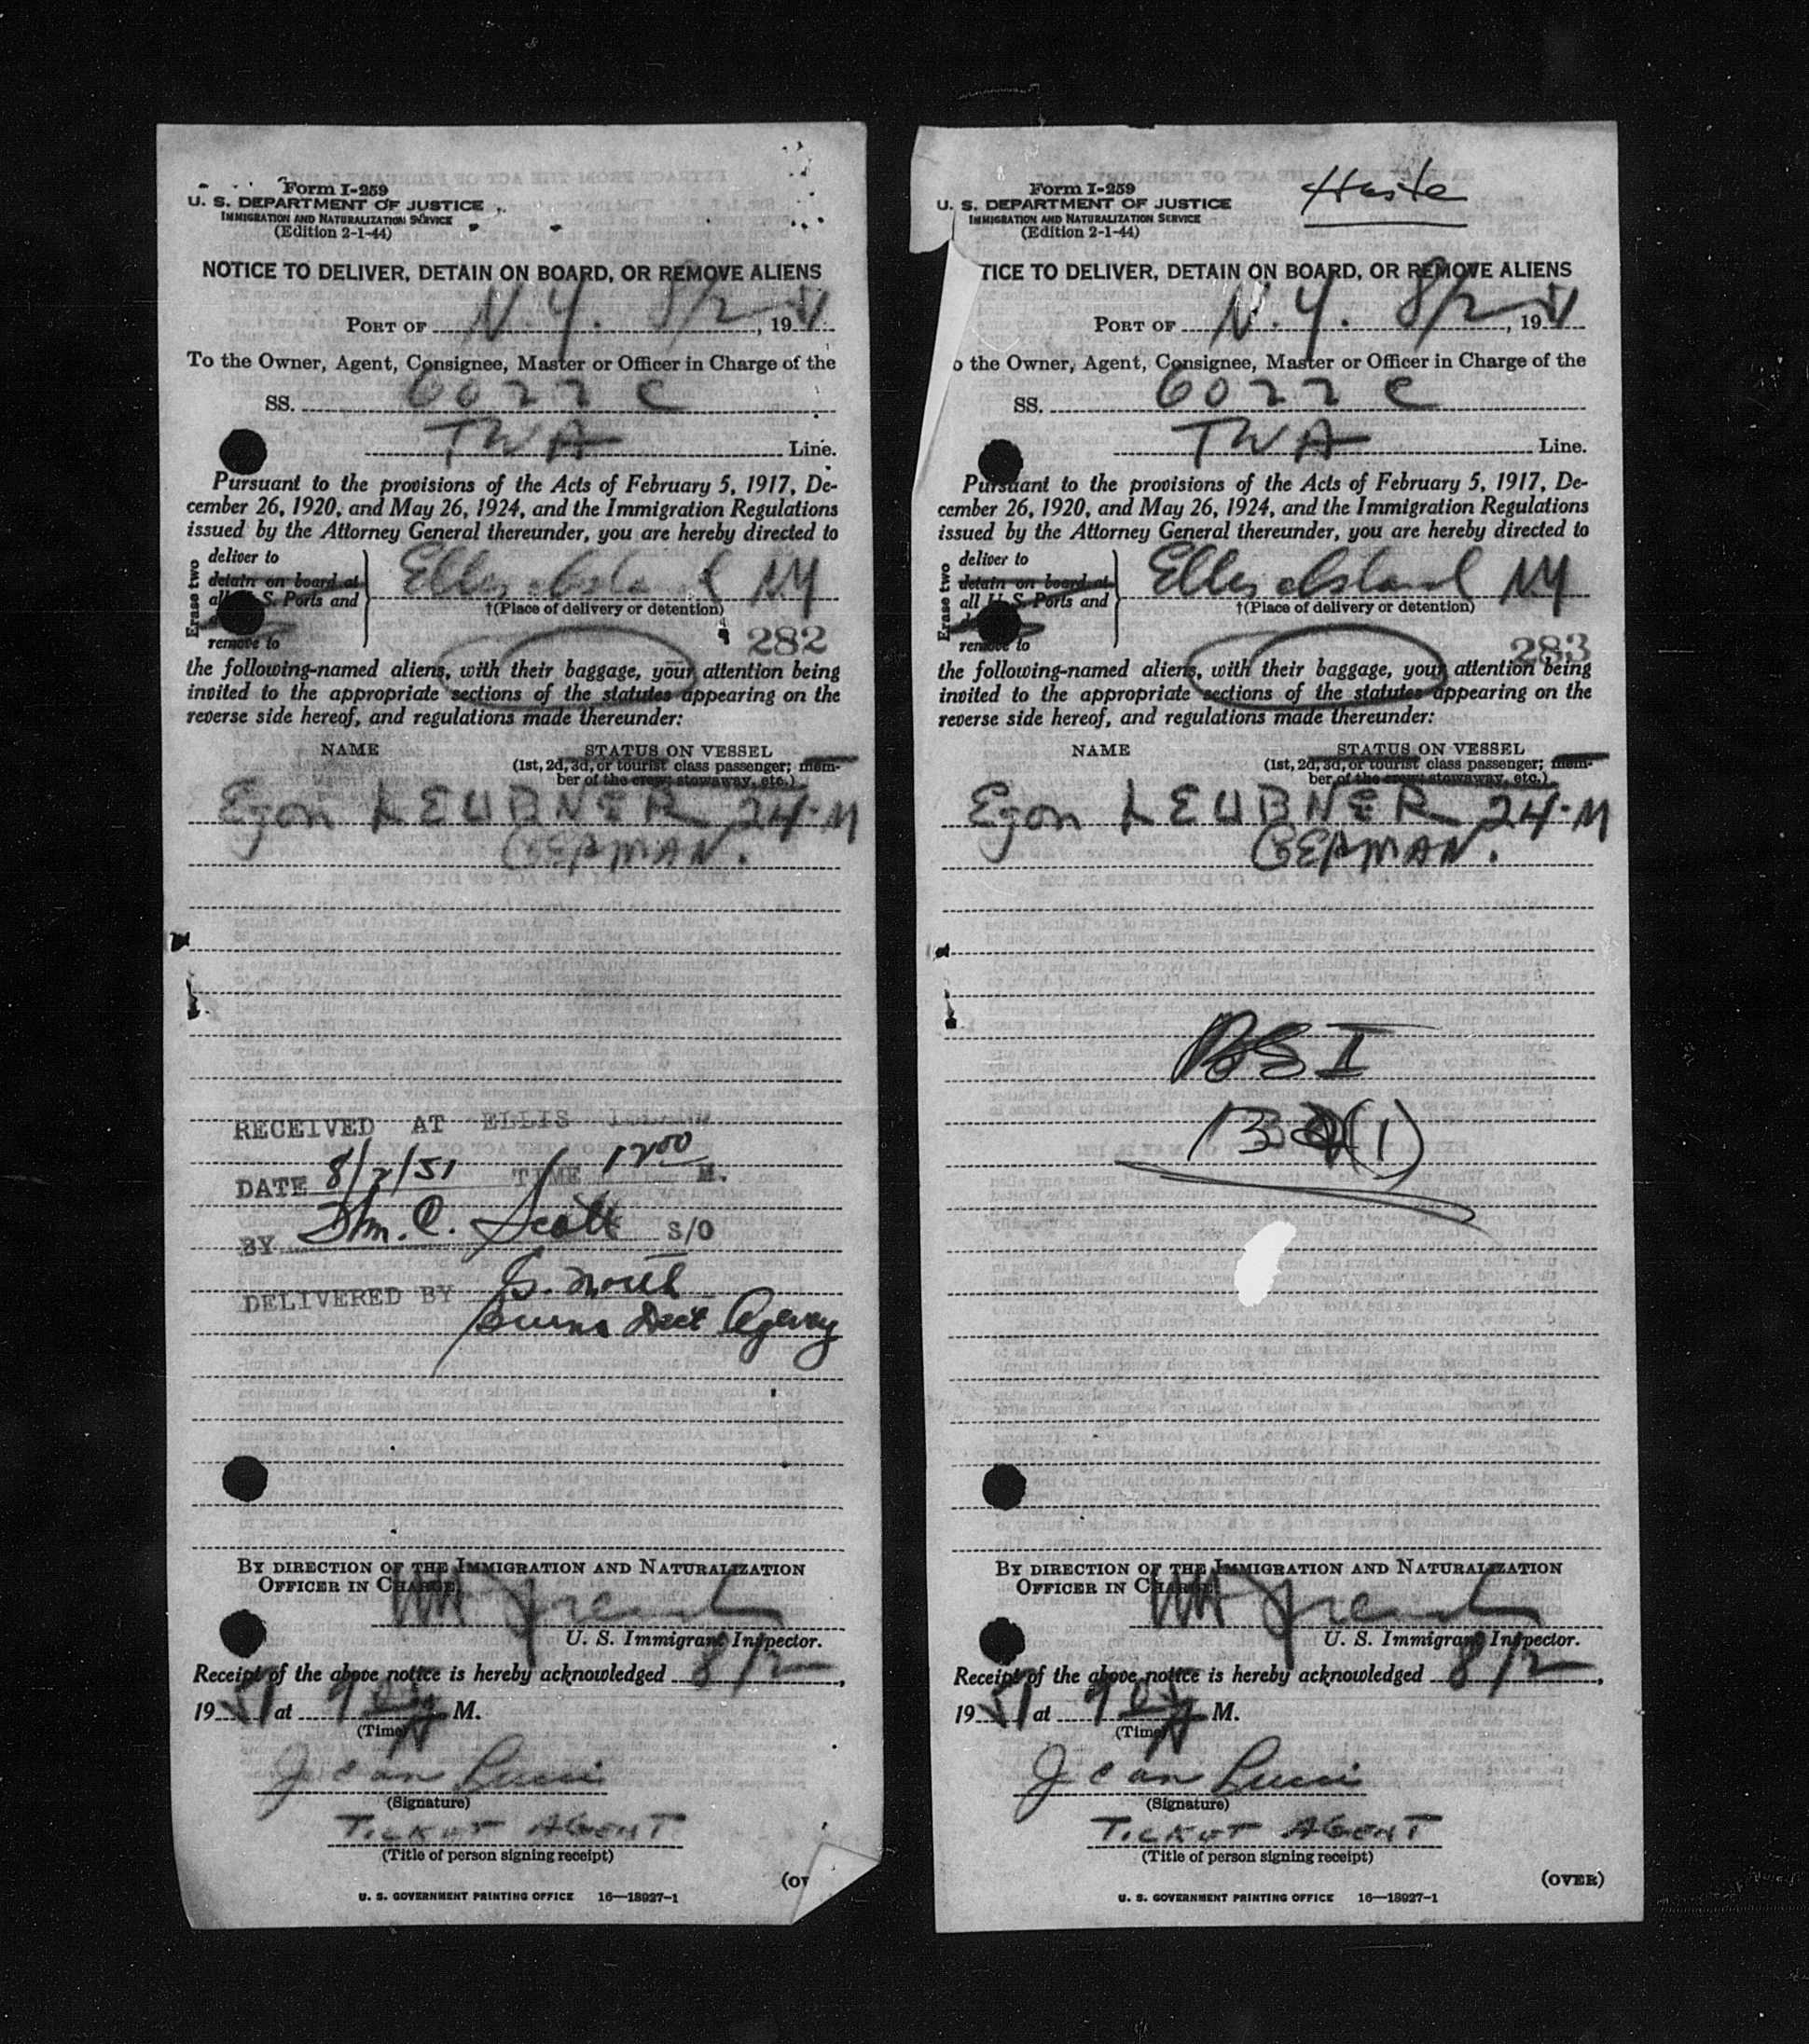 Form I-259
U. S. DEPARTMENT OF JUSTICE
IMMIGRATION AND NATURALIZATION SERVICE
(Edition 2-1-44)
NOTICE TO DELIVER, DETAIN ON BOARD, OR REMOVE ALIENS
PORT OF N.Y. 8/2, 1951
To the Owner, Agent, Consignee, Master or Officer in Charge of the
SS. 6022 C
TWA Line.
Pursuant to the provisions of the Acts of February 5, 1917, De-
cember 26, 1920, and May 26, 1924, and the Immigration Regulations
issued by the Attorney General thereunder, you are hereby directed to
Erase two
deliver to
detain on board at
all U. S. Ports and
remove to
Ellis Island NY
†(Place of delivery or detention)
282
the following-named aliens, with their baggage, your attention being
invited to the appropriate sections of the statutes appearing on the
reverse side hereof, and regulations made thereunder:
NAME STATUS ON VESSEL
(1st, 2d, 3d, or tourist class passenger; mem-
ber of the crew; stowaway, etc.)
Egon LEUBNER 24-M
GERMAN.
RECEIVED AT ELLIS ISLAND
DATE 8/2/51 TIME 1200 M.
BY Wm. C. Scott S/O
DELIVERED BY
Burns Dect Agency
BY DIRECTION OF THE IMMIGRATION AND NATURALIZATION
OFFICER IN CHARGE,
U. S. Immigrant Inspector.
Receipt of the above notice is hereby acknowledged 8/2,
1951 at M.
(Time)
Jean Lucci
(Signature)
TICKET AGENT
(Title of person signing receipt)
(OV
U. S. GOVERNMENT PRINTING OFFICE 16—18927-1
Form I-259
Haste
U. S. DEPARTMENT OF JUSTICE
IMMIGRATION AND NATURALIZATION SERVICE
(Edition 2-1-44)
TICE TO DELIVER, DETAIN ON BOARD, OR REMOVE ALIENS
PORT OF N.Y. 8/2, 1951
o the Owner, Agent, Consignee, Master or Officer in Charge of the
SS. 6022 C
TWA Line.
Pursuant to the provisions of the Acts of February 5, 1917, De-
cember 26, 1920, and May 26, 1924, and the Immigration Regulations
issued by the Attorney General thereunder, you are hereby directed to
Erase two
deliver to
detain on board at
all U. S. Ports and
remove to
Ellis Island NY
†(Place of delivery or detention)
283
the following-named aliens, with their baggage, your attention being
invited to the appropriate sections of the statutes appearing on the
reverse side hereof, and regulations made thereunder:
NAME STATUS ON VESSEL
(1st, 2d, 3d, or tourist class passenger; mem-
ber of the crew; stowaway, etc.)
Egon LEUBNER 24-M
GERMAN.
BSI
BY DIRECTION OF THE IMMIGRATION AND NATURALIZATION
OFFICER IN CHARGE,
U. S. Immigrant Inspector.
Receipt of the above notice is hereby acknowledged 8/2,
1951 at M.
(Time)
Jean Lucci
(Signature)
TICKET AGENT
(Title of person signing receipt)
(OVER)
U. S. GOVERNMENT PRINTING OFFICE 16—18927-1